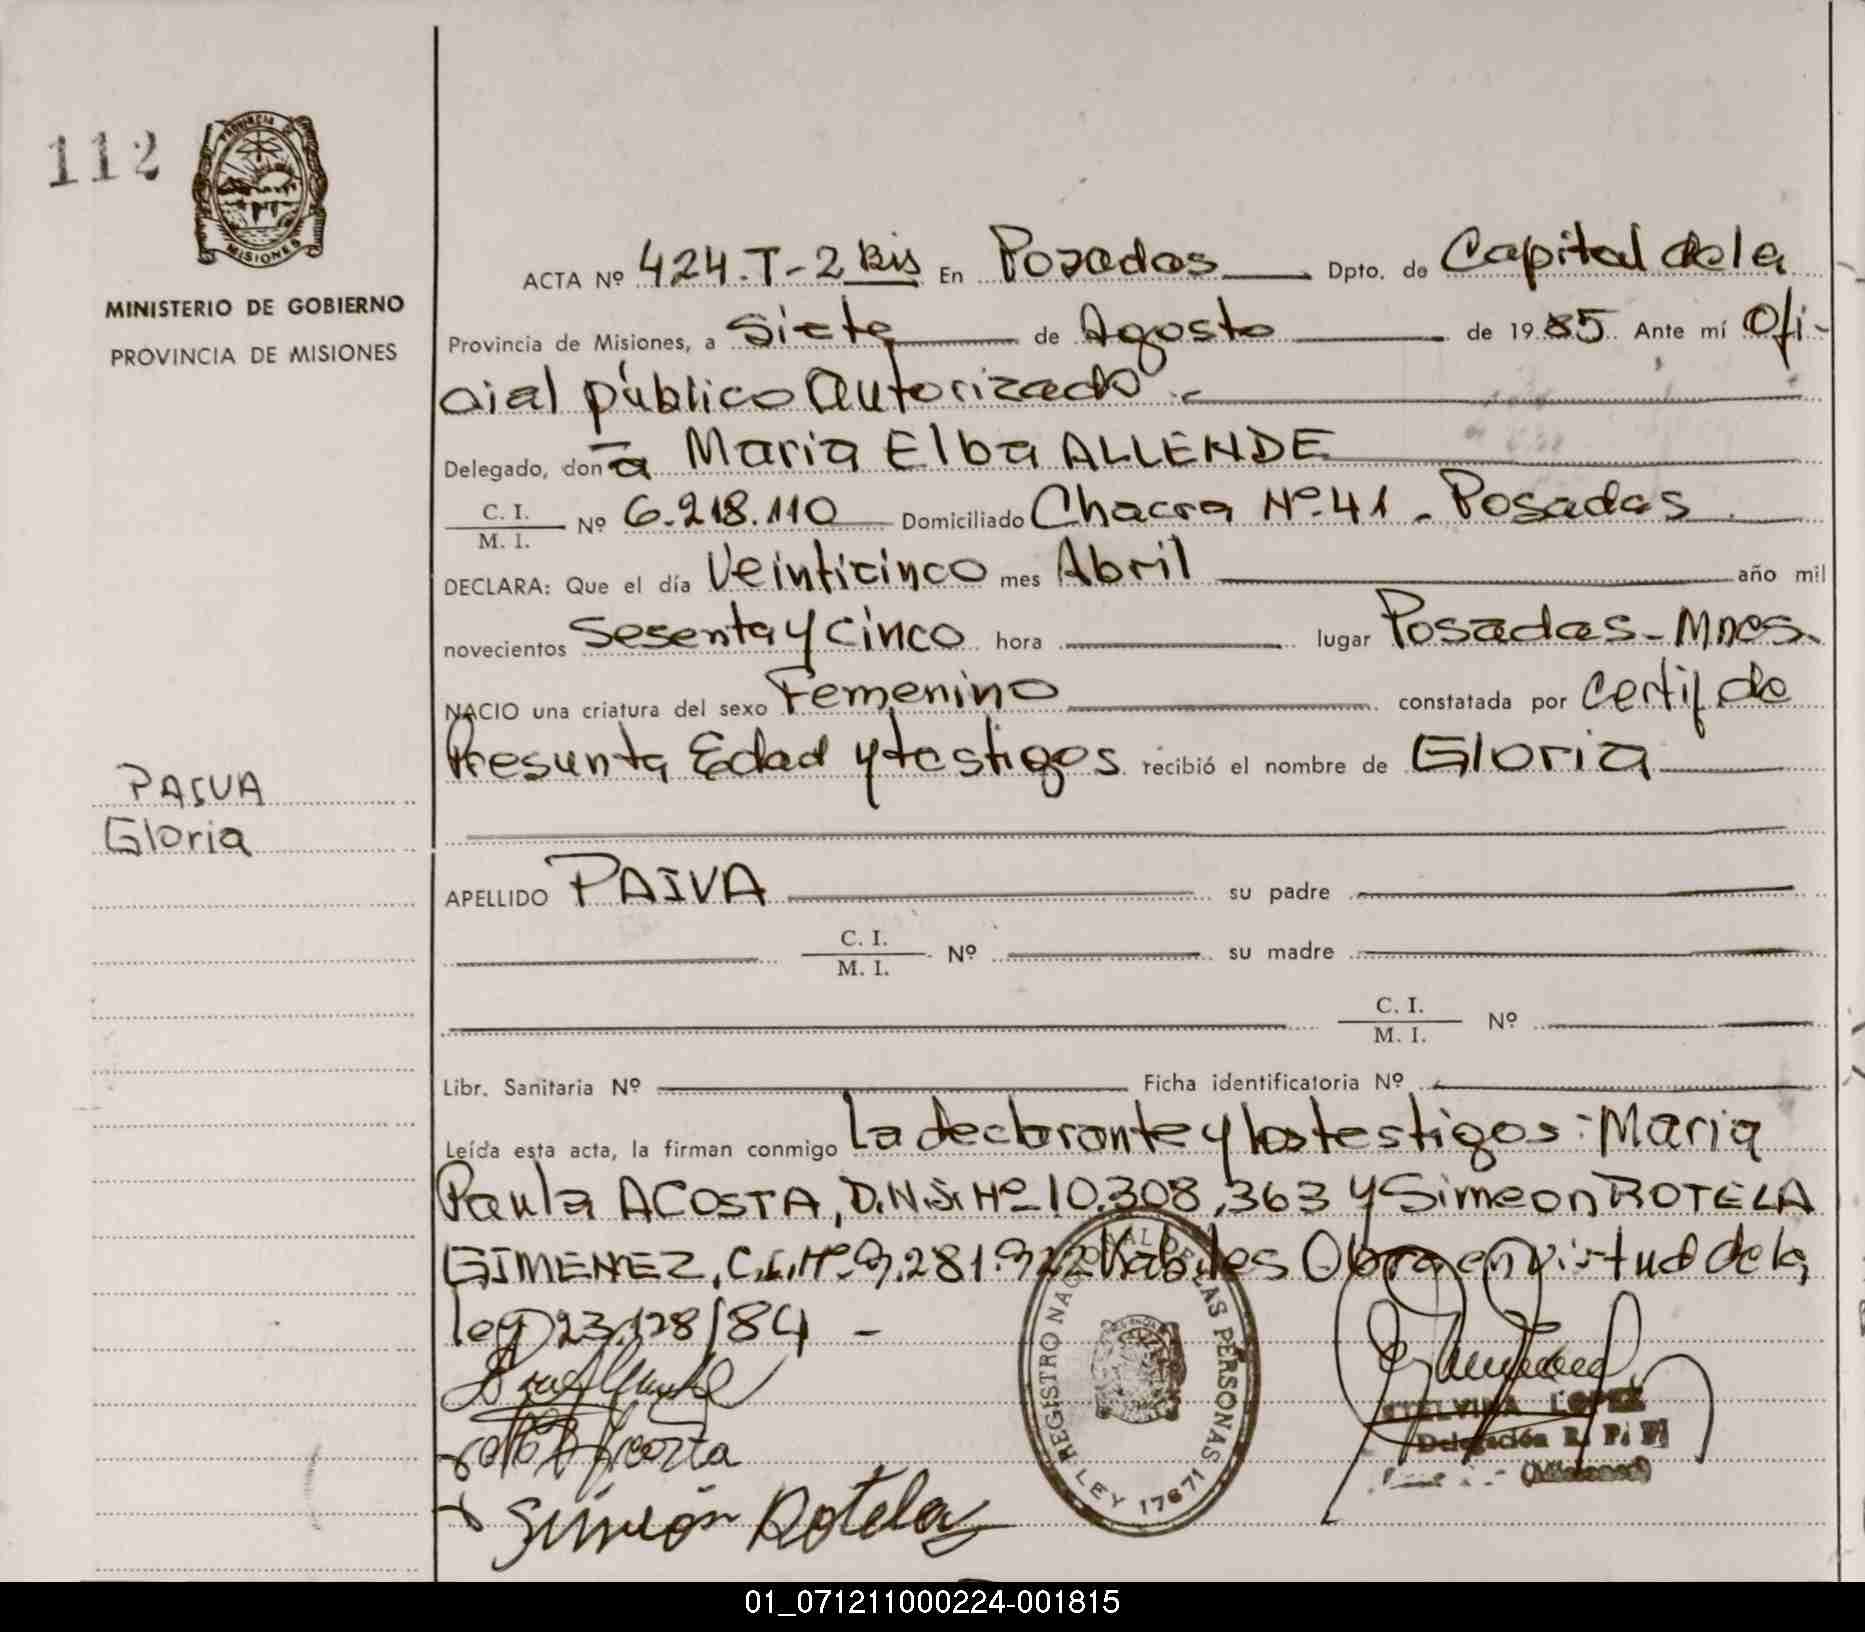 112
PROVINCIA DE
MISIONES
MINISTERIO DE GOBIERNO
PROVINCIA DE MISIONES
ACTA Nº 424.T-2 Bis En Posadas Dpto. de Capital de la
Provincia de Misiones, a Siete de Agosto de 1985 Ante mí Ofi-
cial público Autorizado.-
Delegado, don ā Maria Elba ALLENDE
C. I.
M. I. Nº 6.218.110 Domiciliado Chacra Nº 41 - Posadas
DECLARA: Que el día Veinticinco mes Abril año mil
novecientos Sesenta y Cinco hora lugar Posadas - Mnes.
NACIO una criatura del sexo Femenino constatada por Certif de
Presunta Edad y testigos recibió el nombre de Gloria
PAIVA
Gloria
APELLIDO PAIVA su padre
C. I.
M. I. Nº su madre
C. I.
M. I. Nº
Libr. Sanitaria Nº Ficha identificatoria Nº
Leída esta acta, la firman conmigo La declarante y los testigos: Maria
Paula ACOSTA, D.N.I. Nº 10.308.363 y Simeon ROTELA
GIMENEZ, C.I. Nº 9.281.922 Habiles Obra en virtud de la
ley 23.128/84 -
Acosta
Simeón Rotela
REGISTRO NACIONAL DE LAS PERSONAS
LEY 17671
ETELVINA LOPEZ
Delegación R. P.
(Misiones)
01_071211000224-001815